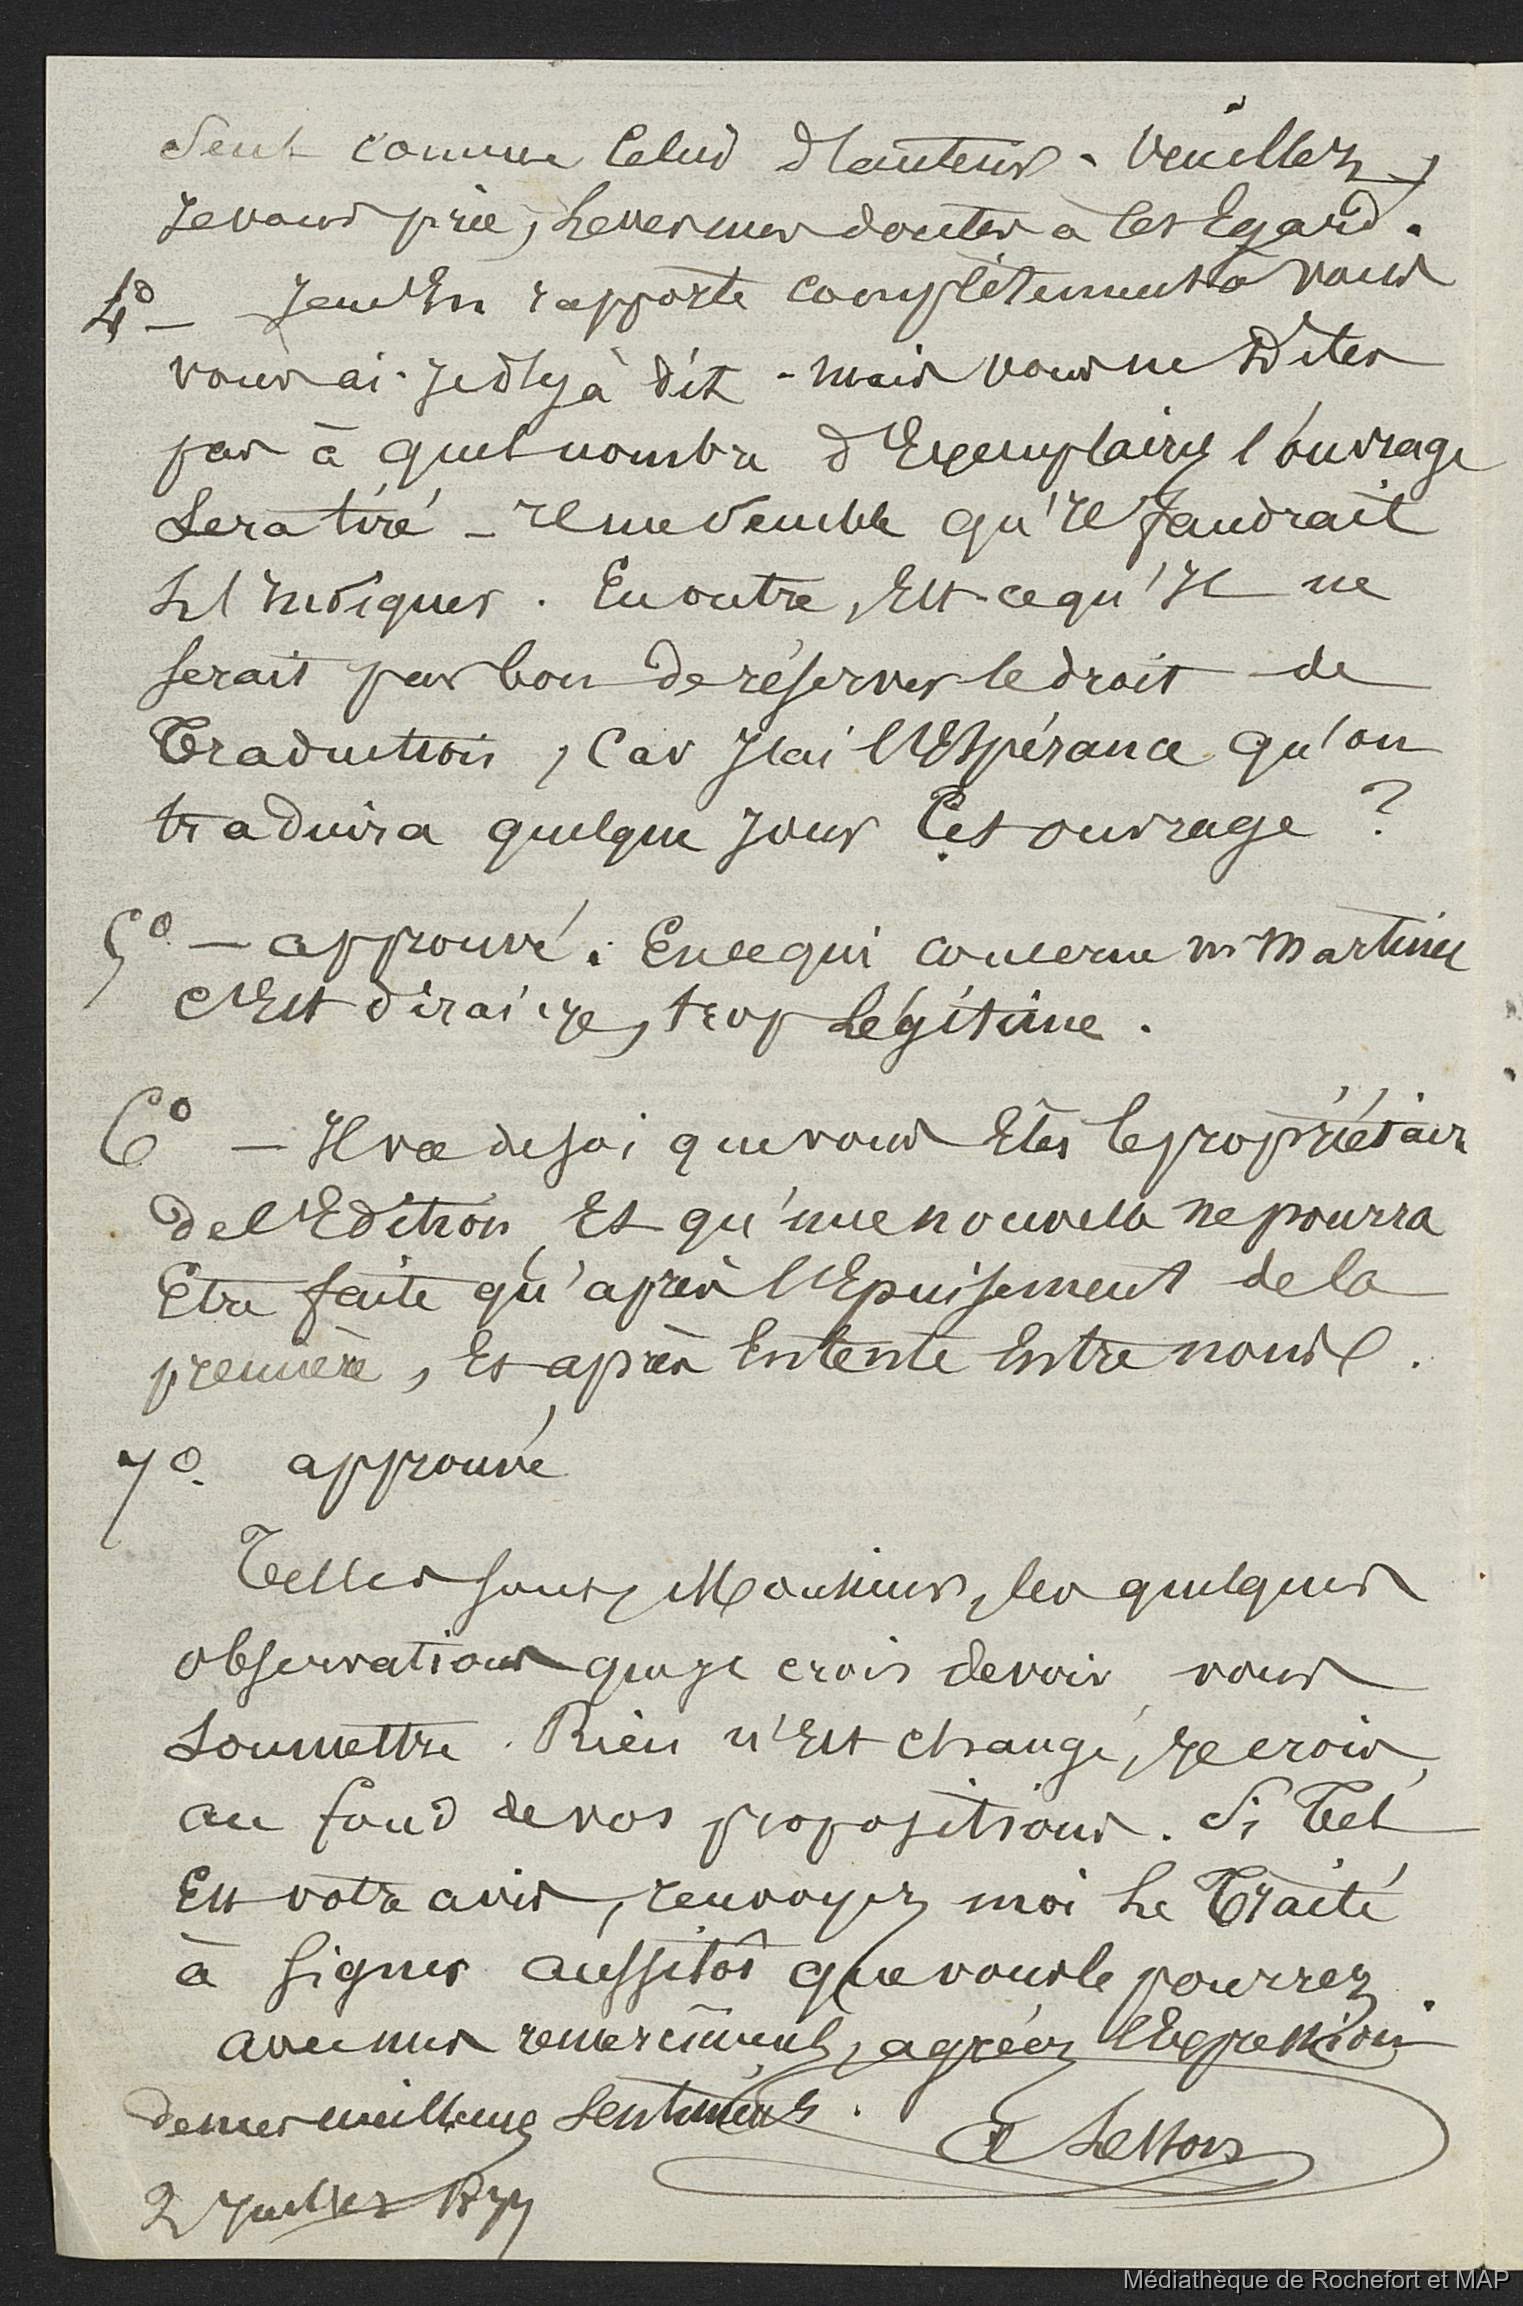 seul comme celui d'auteur. Veuillez,
je vous prie, lever mes doutes à cet Egard.
4° — Je m'En rapporte complètement à vous
vous ai-je déjà dit - mais vous ne dites
pas à quel nombre d'Exemplaires l'ouvrage
sera tiré - Il me semble qu'Il faudrait
l'Indiquer. En outre, Est-ce qu'Il ne
serait pas bon de réserver le droit de
Traduction, car J'ai l'Espérance qu'on
traduira quelque Jour Cet ouvrage ?
5° — approuvé. En ce qui concerne Mr Martinet
c'Est dirai-je, trop légitime.
6° — Il va de soi que vous Etes le propriétaire
de l'Edition, Et qu'une nouvelle ne pourra
Etre faite qu'après l'Epuisement de la
première, Et après Entente Entre nous.
7° approuvé
Telles sont, Monsieur, les quelques
observations que je crois devoir vous
soumettre. Rien n'Est changé, je crois,
au fond de vos propositions. Si Tel
Est votre avis, renvoyez moi le Traité
à signer aussitôt que vous le pourrez.
avec mes remerciments, agréez l'Expression
de mes meilleurs sentiments.
A Lesson
2 Juillet 1877
Médiathèque de Rochefort et MAP